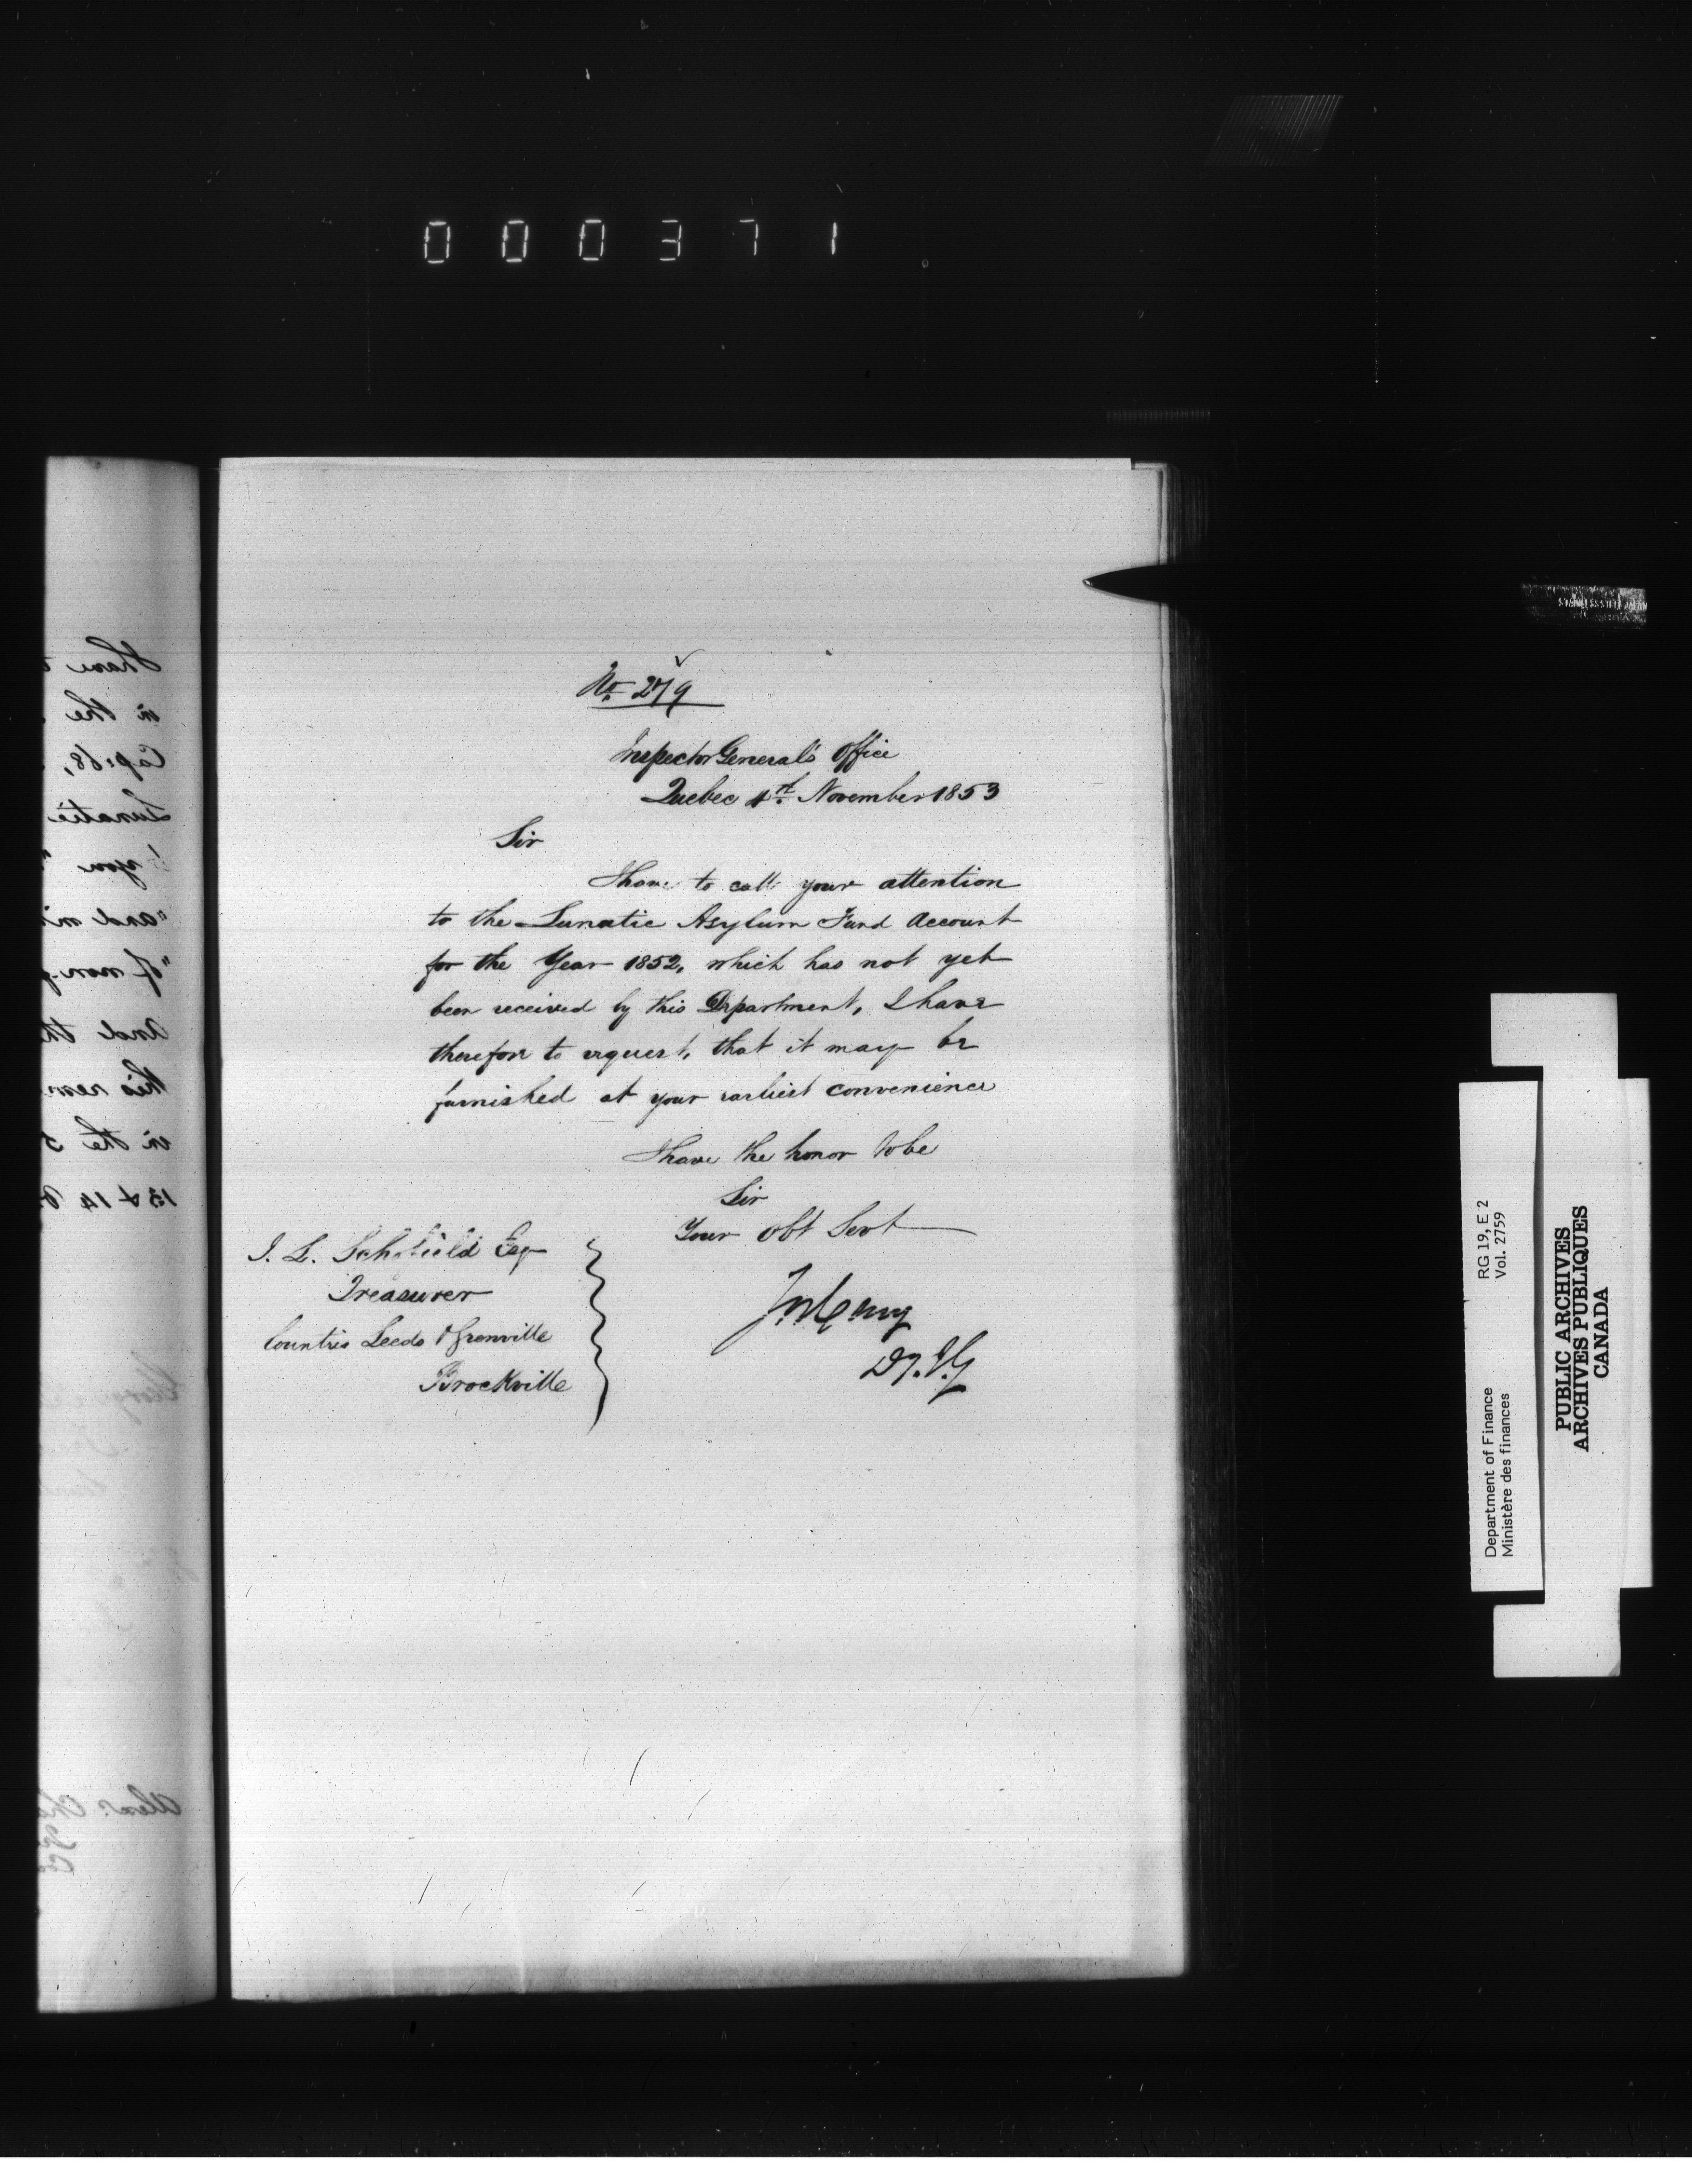 000371
No. 279
Inspector General's Office
Quebec 4th. November 1853
Sir
I have to call your attention
to the Lunatic Asylum Fund Account
for the Year 1852, which has not yet
been received by this Department, I have
therefore to request, that it may be
furnished at your earliest convenience
I have the honor to be
Sir
Your Obt Servt
J. L. Schofield Esq
Treasurer
Counties Leeds & Grenville
Brockville
Dy. I. G
RG 19, E 2
Vol. 2759
Department of Finance
Ministère des finances
PUBLIC ARCHIVES
ARCHIVES PUBLIQUES
CANADA